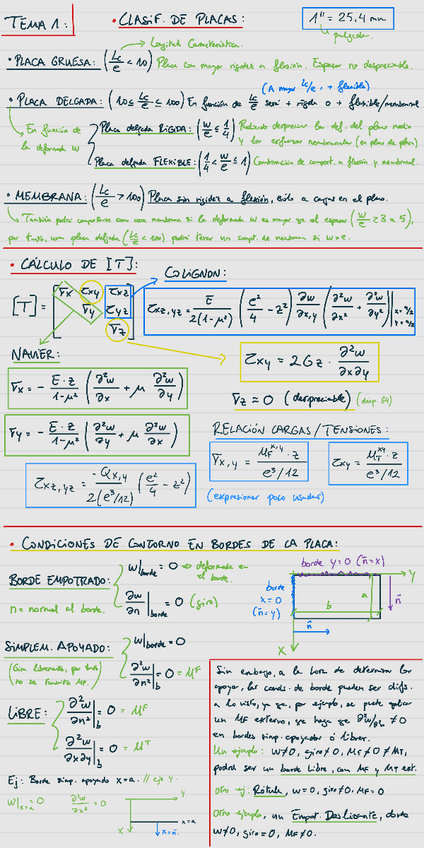 TEMA 1: • CLASIF. DE PLACAS: 1" = 25,4 mm
↳ pulgadas.
→ Longitud Característica.
• PLACA GRUESA: (Lc/e < 10) Placa con mayor rigidez a flexión. Espesor no despreciable.
(A mayor Lc/e, + flexible)
• PLACA DELGADA: (10 ≤ Lc/e ≤ 100) En función de Lc/e será + rígida o + flexible/membrana
↳ En función de la deformada w
Placa delgada RÍGIDA: (w/e ≤ 1/4) Pudiendo despreciar la def. del plano medio y los esfuerzos membranales (en plano de placa)
Placa delgada FLEXIBLE: (1/4 < w/e ≤ 1) Combinación de comport. a flexión y membranal.
• MEMBRANA: (Lc/e > 100) Placa sin rigidez a flexión, sólo a cargas en el plano.
↳ También podrá comportarse como una membrana si la deformada w es mayor que el espesor (w/e ≥ 3 ÷ 5),
por tanto, una placa delgada (Lc/e < 100) podrá tener un compt. de membrana si w > e.
• CÁLCULO DE [T]:
COLIGNON:
[T] = [σx τxy τxz
σy τyz
σz]
τxz,yz = E/2(1-μ²) (e²/4 - z²) ∂w/∂x,y (∂²w/∂x² + ∂²w/∂y²)
NAVIER:
τxy = 2Gz · ∂²w/∂x∂y
σx = - E·z/1-μ² (∂²w/∂x + μ ∂²w/∂y)
σz ≈ 0 (despreciable)
σy = - E·z/1-μ² (∂²w/∂y + μ ∂²w/∂x)
RELACIÓN CARGAS/TENSIONES:
τxz,yz = -Qx,y/2(e³/12) (e²/4 - z²)
σx,y = MF^x,y · z/e³/12
τxy = MT^xy · z/e³/12
(expresiones poco usadas)
• CONDICIONES DE CONTORNO EN BORDES DE LA PLACA:
BORDE EMPOTRADO:
w|borde = 0 → deformada en el borde.
∂w/∂n|borde = 0 (giro)
n = normal al borde.
borde y=0 (n̄=x)
borde x=0 (n̄=y)
y
a
b
n̄
n̄
x
SIMPLEM. APOYADO:
w|borde = 0
∂²w/∂n²|b = 0 = MF
(Giro liberado, por tanto no se transmite MF.)
LIBRE:
∂²w/∂n²|b = 0 = MF
∂²w/∂x∂y|b = 0 = MT
Ej: Borde simp. apoyado x=a. // eje y.
w|x=a = 0 ∂²w/∂x² = 0
y
x
x=a
x=n̄.
Sin embargo, a la hora de determinar los
apoyos, las conds. de borde pueden ser difs.
a lo visto, ya que, por ejemplo, se puede aplicar
un MF externo, que haga que ∂²w/∂n² ≠ 0
en bordes simp. apoyados ó libres.
Un ejemplo: w≠0, giro≠0, MF≠0≠MT,
podrá ser un borde libre, con MF y MT ext.
otro ej: Rótula, w=0, giro≠0, MF=0
Otro ejemplo, un Empot. Deslizante, donde
w≠0, giro=0, MF≠0.